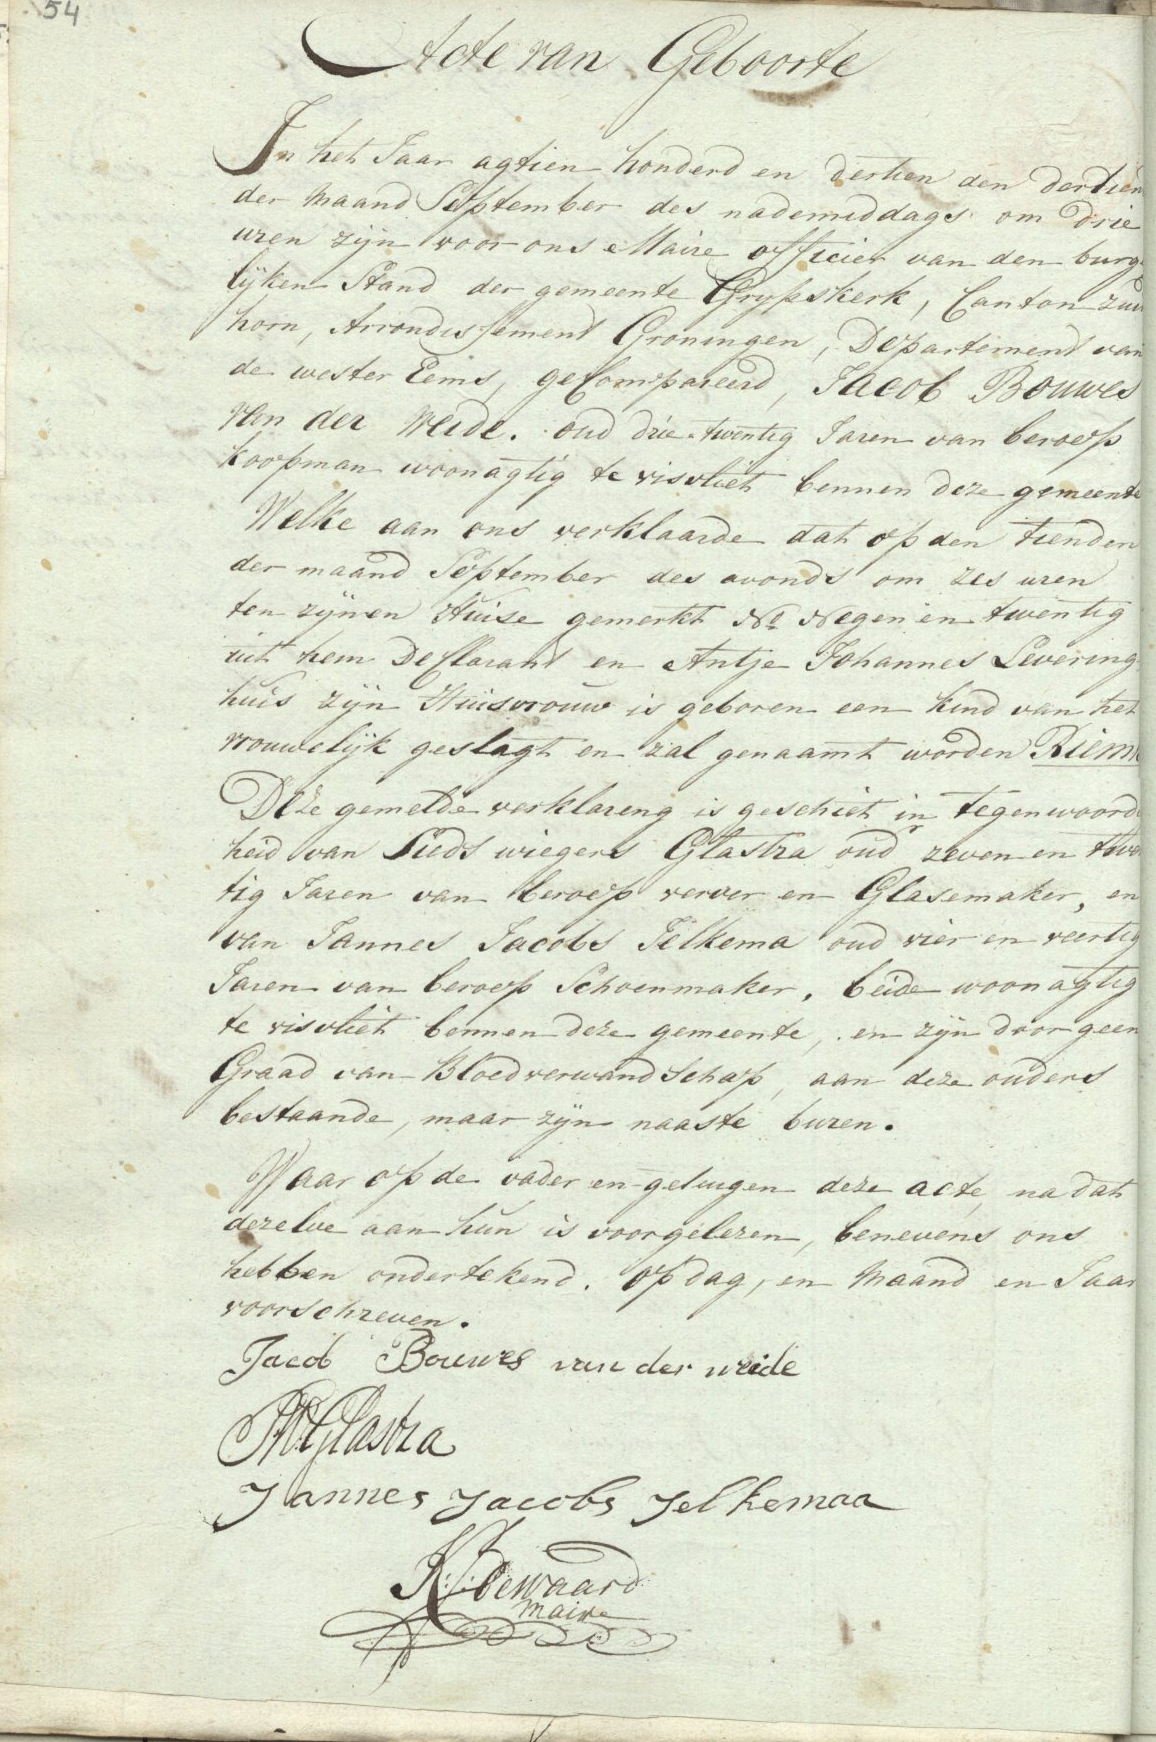 54
Acte van Geboorte
In het Jaar agtien honderd en dertien den dertien
der Maand September des nademiddags om drie
uren zijn voor ons Maire officier van den burge
lijken Stand der gemeente Grypskerk, Canton zui
horn, Arrondissement Groningen, Departement van
de wester Eems, geCompareerd, Jacob Bouwes
van der Weide. oud drie twentig Jaren van beroep
koopman woonagtig te visvliet bennen deze gemeente
Welke aan ons verklaarde dat op den tienden
der maand September des avonds om zes uren
ten zijnen Huise gemerkt No Negen en twentig
uit hem Declarant en Antje Johannes Levering
huis zijn Huisvrouw is geboren een kind van het
vrouwelijk geslagt en zal genaamt worden Riem
Deze gemelde verklareng is geschiet in tegenwoord
heid van Sieds wiegers Glastra oud zeven en twe
tig Jaren van beroep verver en Glasemaker, en
van Jannes Jacobs Jelkema oud vier en veertig
Jaren van beroep Schoenmaker, beide woonagtig
te visvliet bennen deze gemeente, en zijn door geen
Graad van Bloedverwandschap, aan deze ouders
bestaande, maar zyn naaste buren.
Waar op de vader en getuigen deze acte, na dat
dezelve aan hun is voorgelezen, benevens ons
hebben ondertekend. op dag, en Maand en Jaar
voorschreven.
Jacob Bouwes van der weide
Glastra
Jannes Jacobs Jelkemaa
K. J. Dewaard
Maire